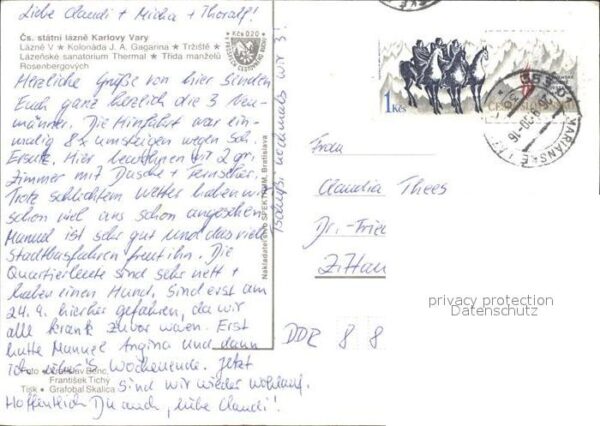 Liebe Claudi + Micha + Thoralf!
Čs. státní lázně Karlovy Vary
Lázně V ★ Kolonáda J. A. Gagarina ★ Tržiště ★
Lázeňské sanatorium Thermal ★ Třída manželů
Rosenbergových
Kčs 0,20
Herzliche Grüße von hier senden
Euch ganz herzlich die 3
männer. Die Hinfahrt war ein-
malig 8x umsteigen wegen
Ersatz. Hier bewohnen wir 2 gr.
Zimmer mit Dusche + Fernseher.
Trotz schlichtem Wetter haben wir
schon viel uns schon angesehen
Manuel ist sehr gut und das viele
Stadtbusfahren freut ihn. Die
Quartierleute sind sehr nett +
haben einen Hund. Sind erst am
24.9. hierher gefahren, da wir
alle krank zuvor waren. Erst
hatte Manuel Angina und dann
ich übers Wochenende. Jetzt
sind wir wieder wohlauf.
Hoffentlich Du auch, liebe Claudi!
Tschüßi nochmals wir 3!
František Tichý
Tisk • Grafobal Skalica
Nakladatelstvo SPEKTRUM, Bratislava
1 Kčs
MARIÁNSKÉ
Frau
Claudia Thees
Dr.-Frie
Zittau
DDR 8 8
privacy protection
Datenschutz